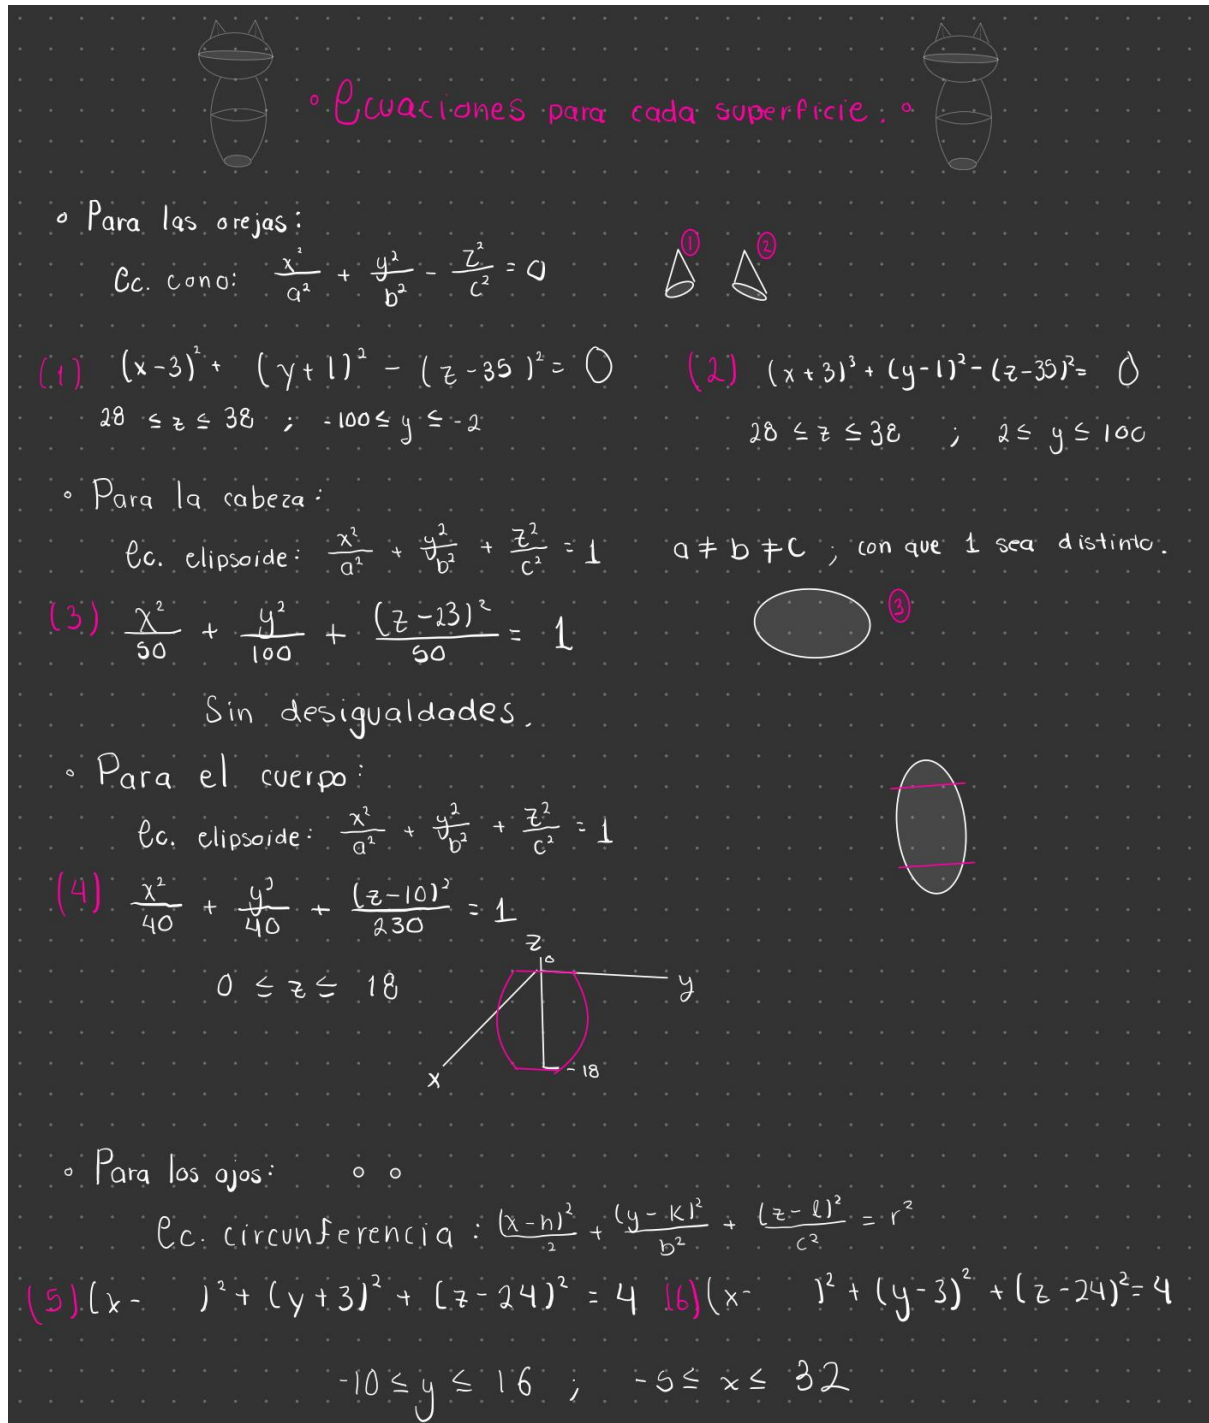 ° Ecuaciones para cada superficie: °
° Para las orejas:
Ec. cono: x²/a² + y²/b² - z²/c² = 0
① ②
(1) (x-3)² + (y+1)² - (z-35)² = 0 (2) (x+3)³ + (y-1)² - (z-35)² = 0
28 ≤ z ≤ 38 ; -100 ≤ y ≤ -2 28 ≤ z ≤ 38 ; 2 ≤ y ≤ 100
° Para la cabeza:
Ec. elipsoide: x²/a² + y²/b² + z²/c² = 1 a ≠ b ≠ c ; con que 1 sea distinto.
(3) x²/50 + y²/100 + (z-23)²/50 = 1 ③
Sin desigualdades.
° Para el cuerpo:
Ec. elipsoide: x²/a² + y²/b² + z²/c² = 1
(4) x²/40 + y²/40 + (z-10)²/230 = 1
0 ≤ z ≤ 18
z
0
y
x
-18
° Para los ojos:
Ec. circunferencia: (x-h)²/² + (y-k)²/b² + (z-l)²/c² = r²
(5) (x- )² + (y+3)² + (z-24)² = 4 (6) (x- )² + (y-3)² + (z-24)² = 4
-10 ≤ y ≤ 16 ; -5 ≤ x ≤ 32